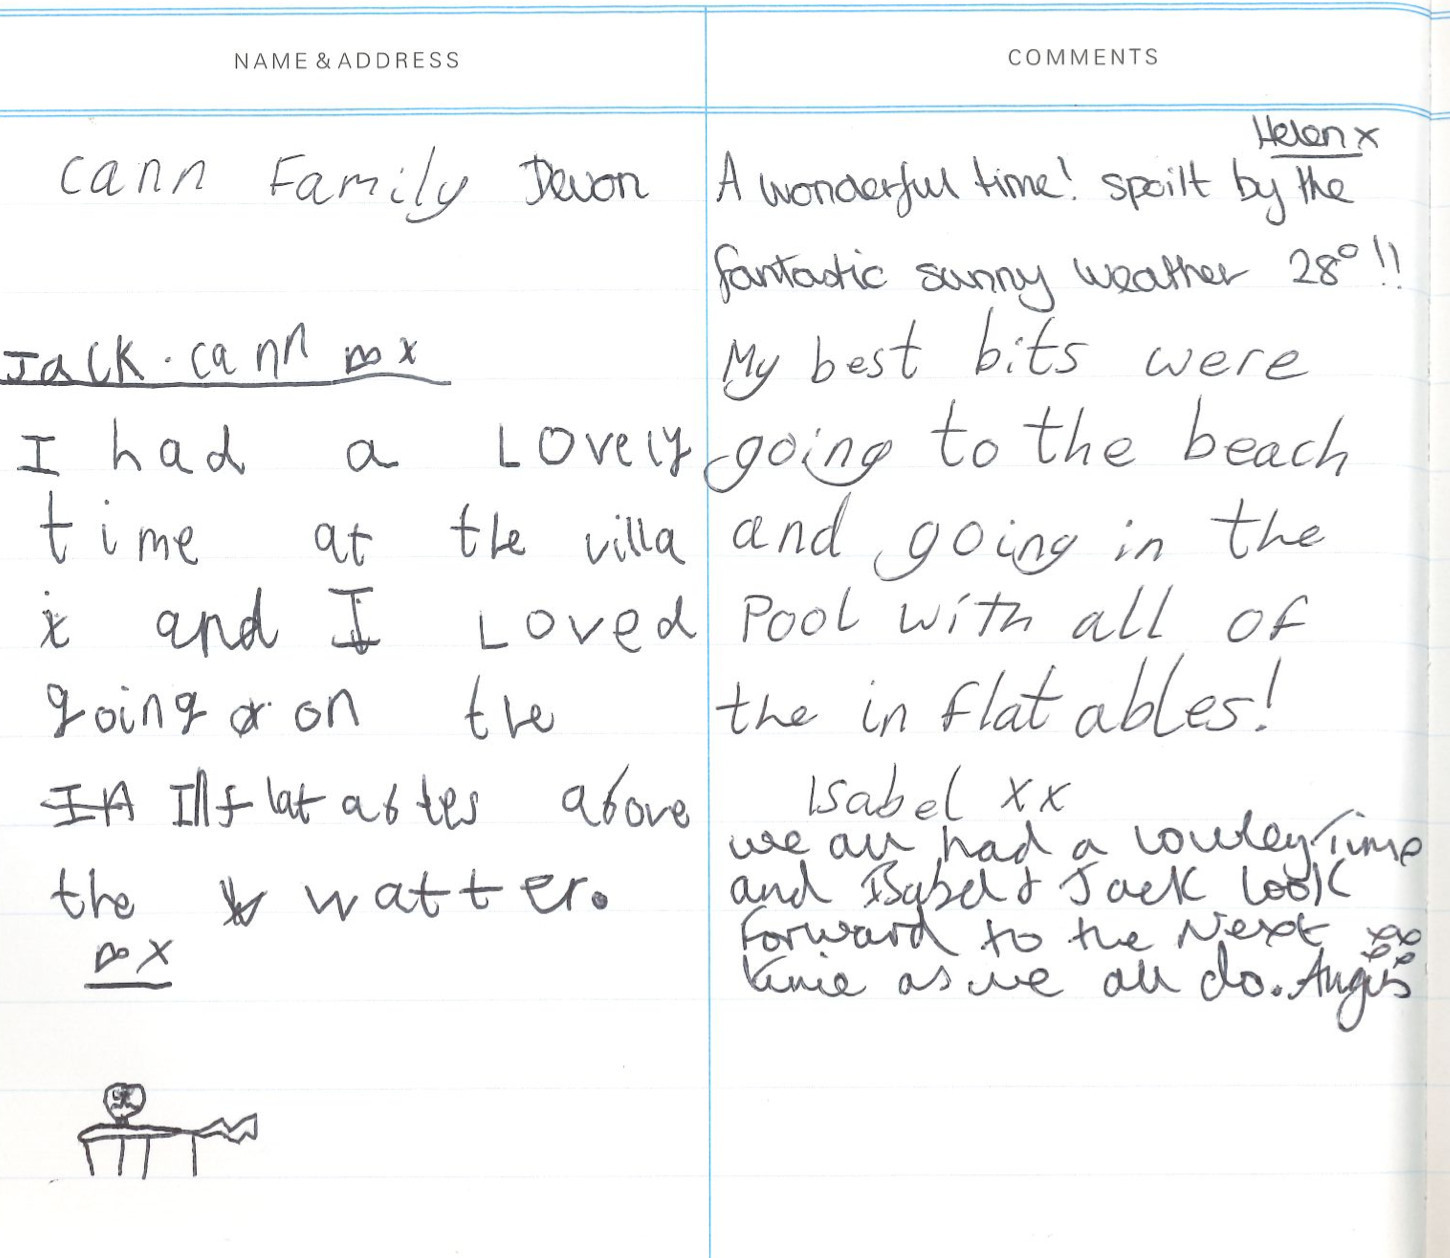 NAME & ADDRESS
cann Family Devon
Jack.cann x
I had a LOVELY
time at the villa
x and I LOVED
going on the
Inflatables above
the watter.
x
COMMENTS
Helen x
A wonderful time! spoilt by the
fantastic sunny weather 28° !!
My best bits were
going to the beach
and going in the
Pool with all of
the inflatables!
Isabel xx
we all had a Time
and Isabel & Jack look
Forward to the Next
time as we all do.